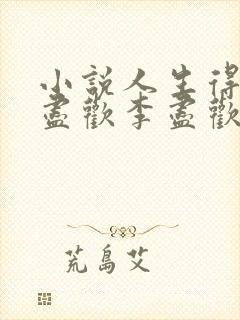 小說人生得
盡歡李盡歡
荒島艾